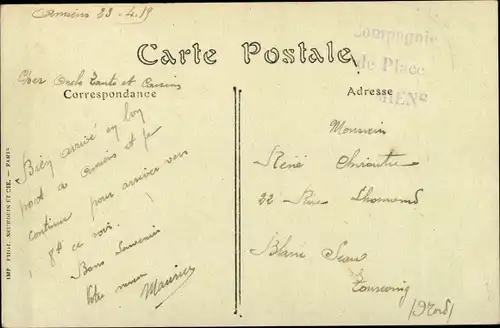 Amiens 23-4-19
Compagnie
de Place
Carte Postale
Cher Oncle Tante et Cousins
Correspondance
Adresse
Bien arrivé en bon
port à Amiens et je
continue pour arriver vers
8h ce soir.
Bons Souvenirs
Votre neveu
Maurice
Monsieur
René
22 Rue Lhomond
Blanc Seau
Tourcoing
(Nord)
IMP. PHOT. NEURDEIN ET CIE. — PARIS